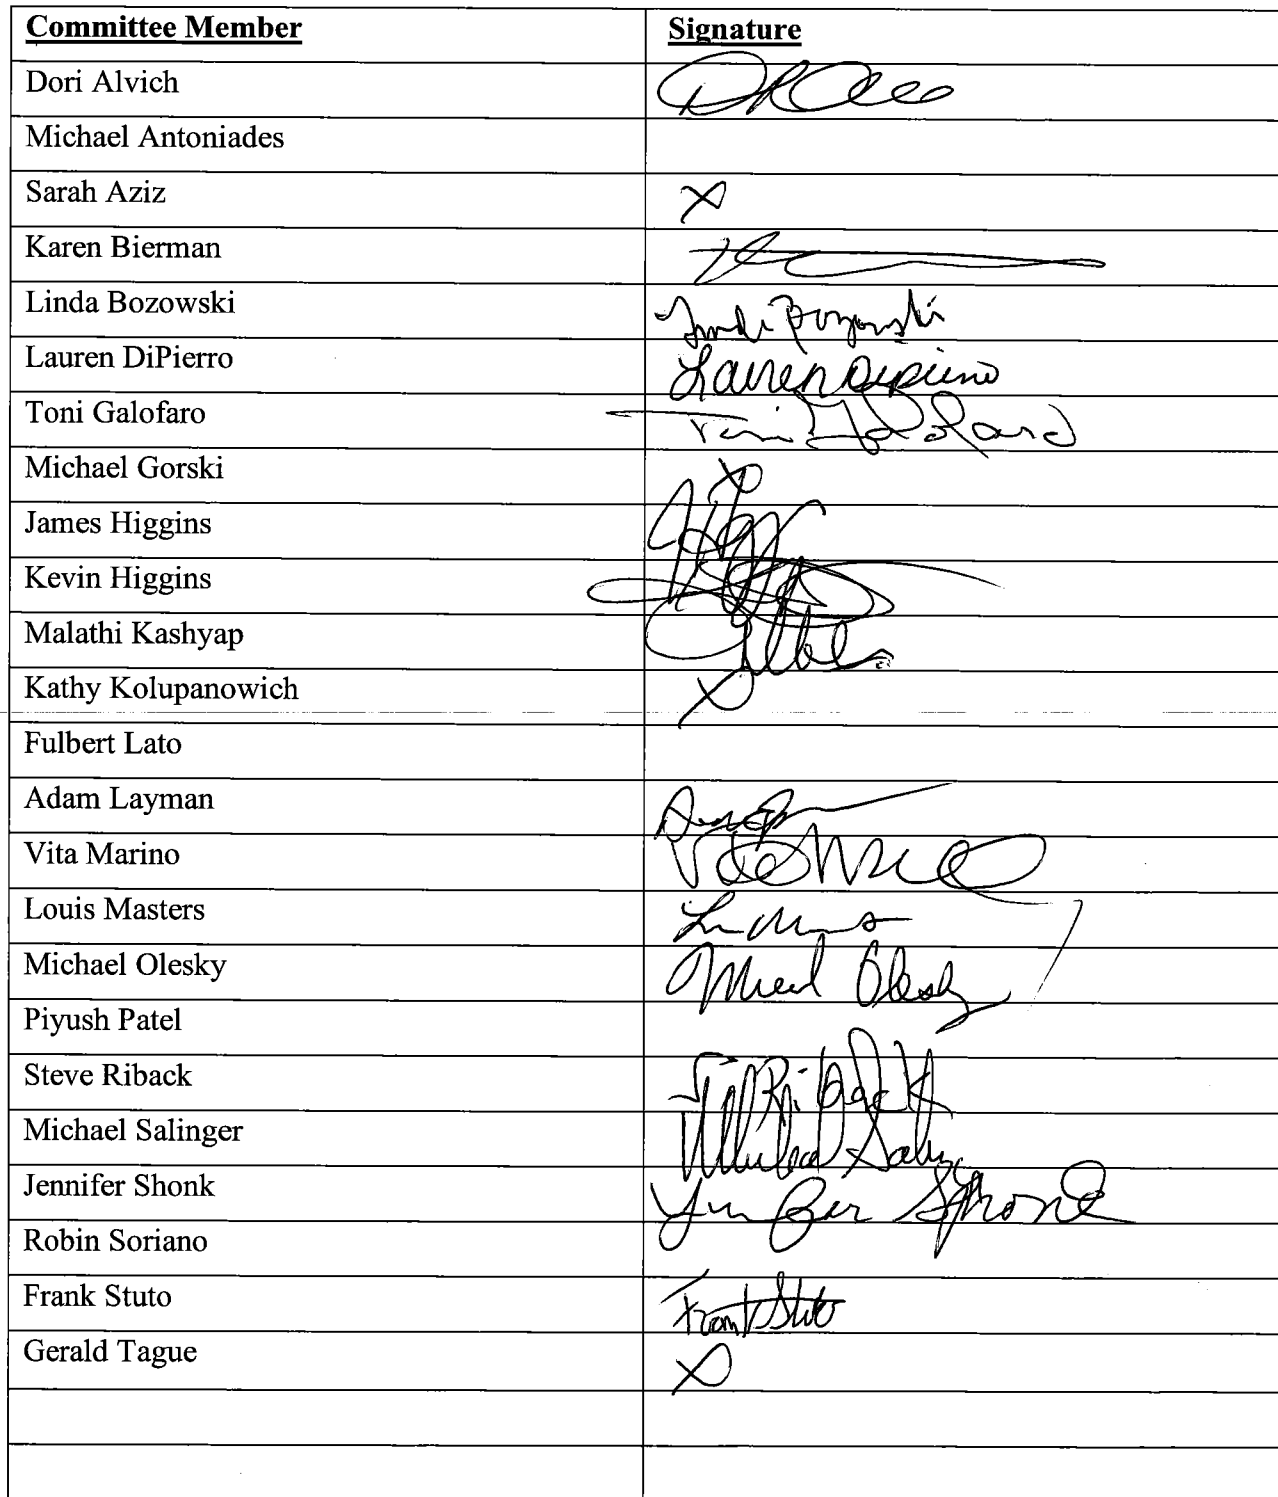 Committee Member Signature
Dori Alvich
Michael Antoniades
Sarah Aziz X
Karen Bierman
Linda Bozowski
Lauren DiPierro Lauren DiPierro
Toni Galofaro Toni Galofaro
Michael Gorski X
James Higgins
Kevin Higgins
Malathi Kashyap
Kathy Kolupanowich X
Fulbert Lato
Adam Layman
Vita Marino
Louis Masters
Michael Olesky Michael Olesky
Piyush Patel
Steve Riback Riback
Michael Salinger Michael
Jennifer Shonk Jennifer Shonk
Robin Soriano
Frank Stuto Frank Stuto
Gerald Tague X